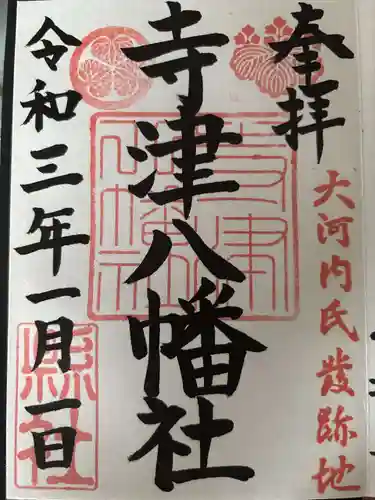 奉拝
大河内氏發跡地
寺津八幡社
令和三年一月一日
寺津八幡社
縣社